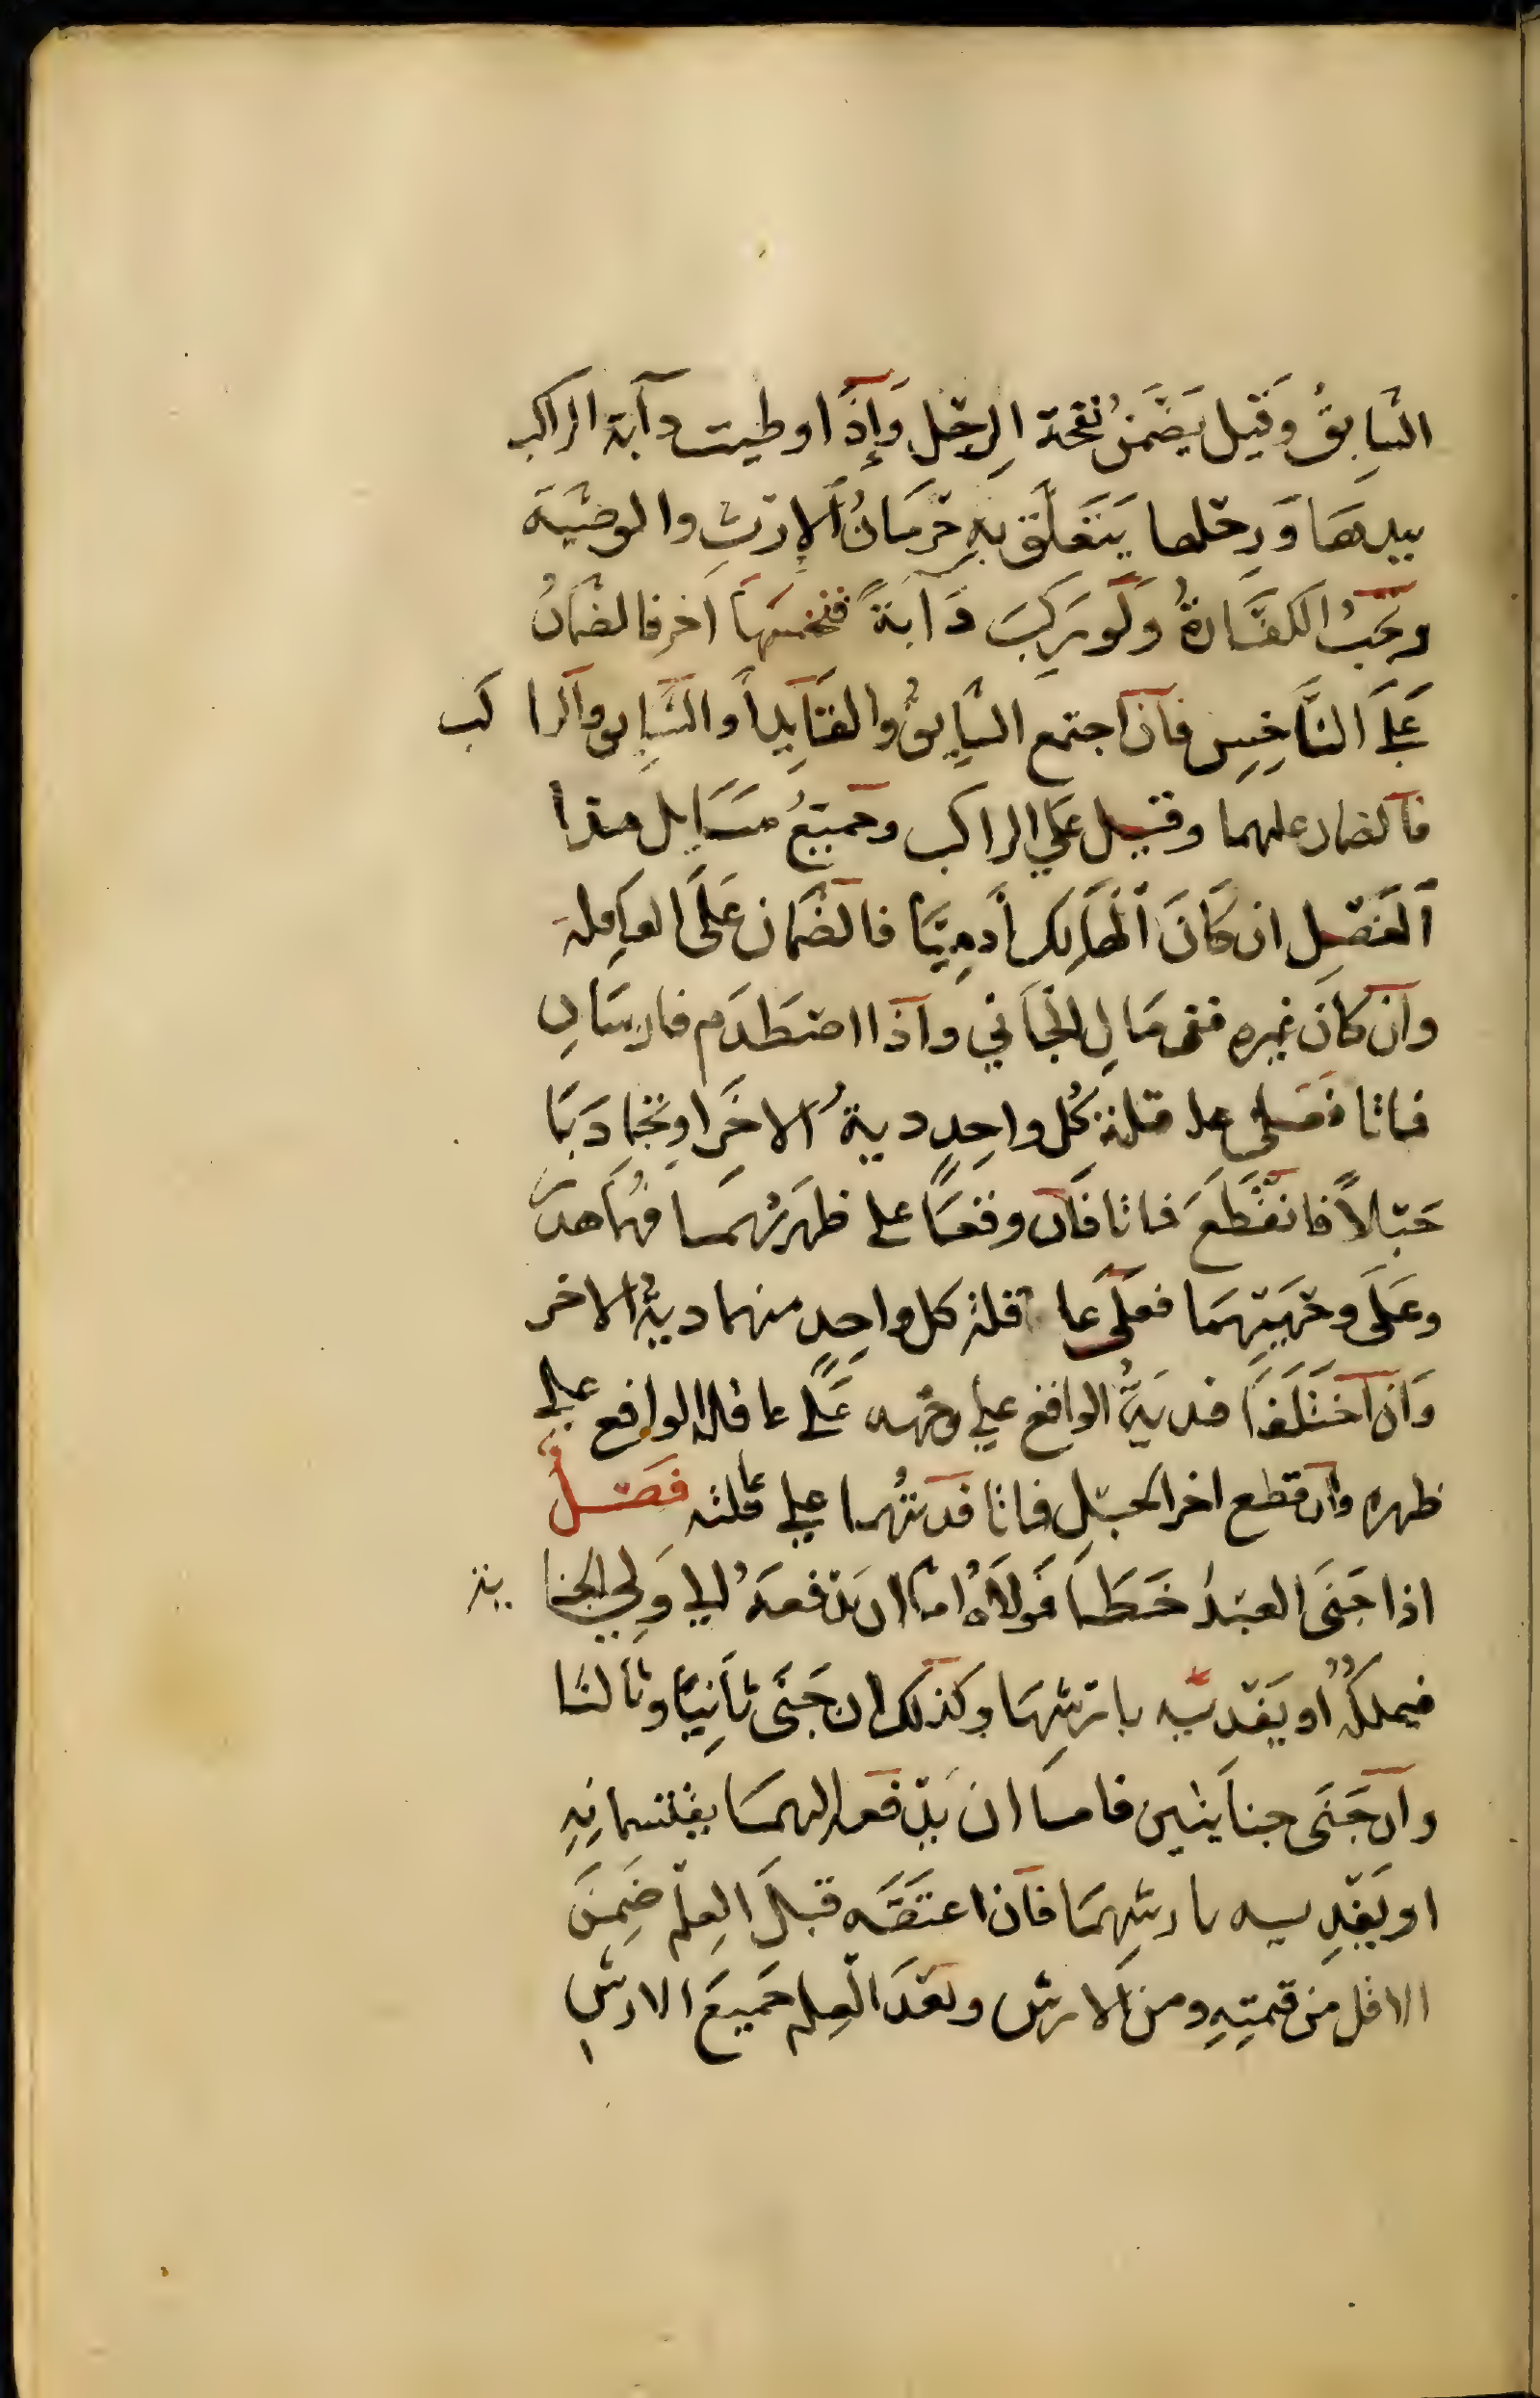 السَّايِقُ وَقيل يَضْمَنُ نفحة الرِجْل وَإذا اوطيت دآبة الراكب
بيدهَا وَرِجلها يَتَعَلَّق بِهِ حِرْمَانُ الإرثِ والوصيّة
وَتجبُ الكفَّارةُ وَلَو رَكِبَ دَآبَةً فنخسهَا اخر فالضمَانُ
عَلَى النَّاخِسِ فان اجتمع السَّايِقُ والقَايِد أو السَّايق والراكب
فالضمان عليهما وقيل عَلي الراكب وجَميعُ مسَايِل هذا
الفَصْلِ ان كَانَ الهَالِك أدمِيًّا فالضَمان عَلَى العَاقِلة
وان كان غيره ففى مَالِ الجَاني واذا اصْطَدَم فارسَانِ
فماتا فعَلى عاقلة كُل واحِدٍ ديةُ الاخَر او تجاذبَا
حَبْلاً فانقَطَعَ فماتا فان وقعَا على ظهرَيْهمَا فهُما هدرٌ
وعَلَى وجْهَيْهِمَا فعَلَى عاقلة كل واحِدٍ منهما ديةُ الاخر
وَان اختَلَفَا فديَةُ الواقع علي وجهه عَلَى عاقلة الواقع علي
ظهره وان قطع اخر الحَبْل فماتا فديتُهما علي عاقلته فَصْلٌ
اذا جَنَى العَبْدُ خَطَأً فمَولاَهُ امّا ان يَدفعهُ الي وَلي الجناية
فيملكُهُ أو يَفْديه بارْشِهَا وكذلك ان جَنَى ثانِيًا وثالثا
وان جَنَى جنايتين فامّا ان يَدْفعه اليهمَا يقتسمانِهِ
او يَفْدِيه بارشِهمَا فان اعتقَه قبلَ العِلْم ضَمِنَ
الاقل من قيمتِهِ ومن الارش وبَعْدَ العِلم جَميعَ الارشِ